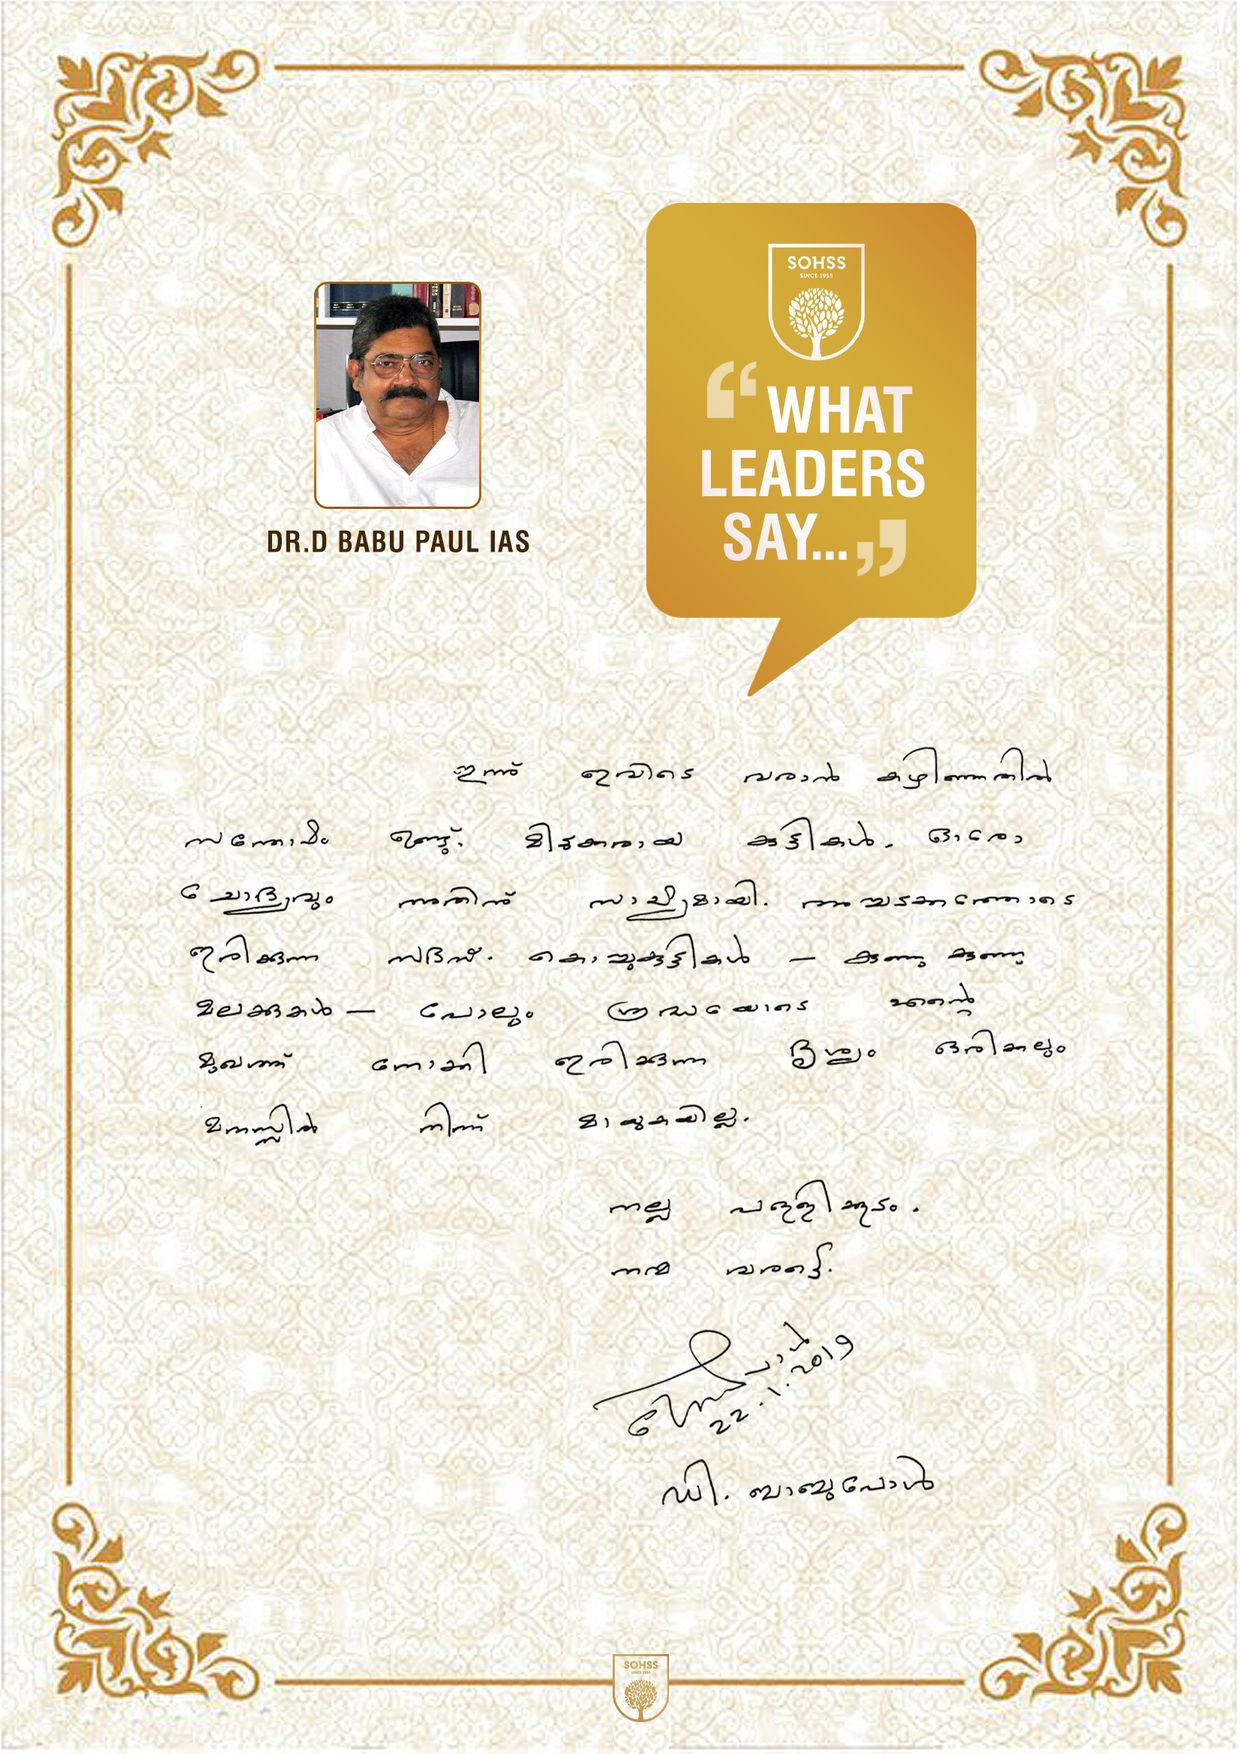 SOHSS
SINCE 1955
“WHAT
LEADERS
SAY...”
DR.D BABU PAUL IAS
ഇന്ന് ഇവിടെ വരാൻ കഴിഞ്ഞതിൽ
സന്തോഷം ഉണ്ട്. മിടുക്കരായ കുട്ടികൾ. ഓരോ
ചോദ്യവും അതിന് സാക്ഷ്യമായി. അച്ചടക്കത്തോടെ
ഇരിക്കുന്ന സദസ്. കൊച്ചുകുട്ടികൾ — കുഞ്ഞു കുഞ്ഞു
മലക്കുകൾ — പോലും ശ്രദ്ധയോടെ എന്റെ
മുഖത്ത് നോക്കി ഇരിക്കുന്ന ദൃശ്യം ഒരിക്കലും
മനസ്സിൽ നിന്ന് മായുകയില്ല.
നല്ല പള്ളിക്കൂടം.
നന്മ വരട്ടെ.
22.1.2019
ഡി. ബാബുപോൾ
SOHSS